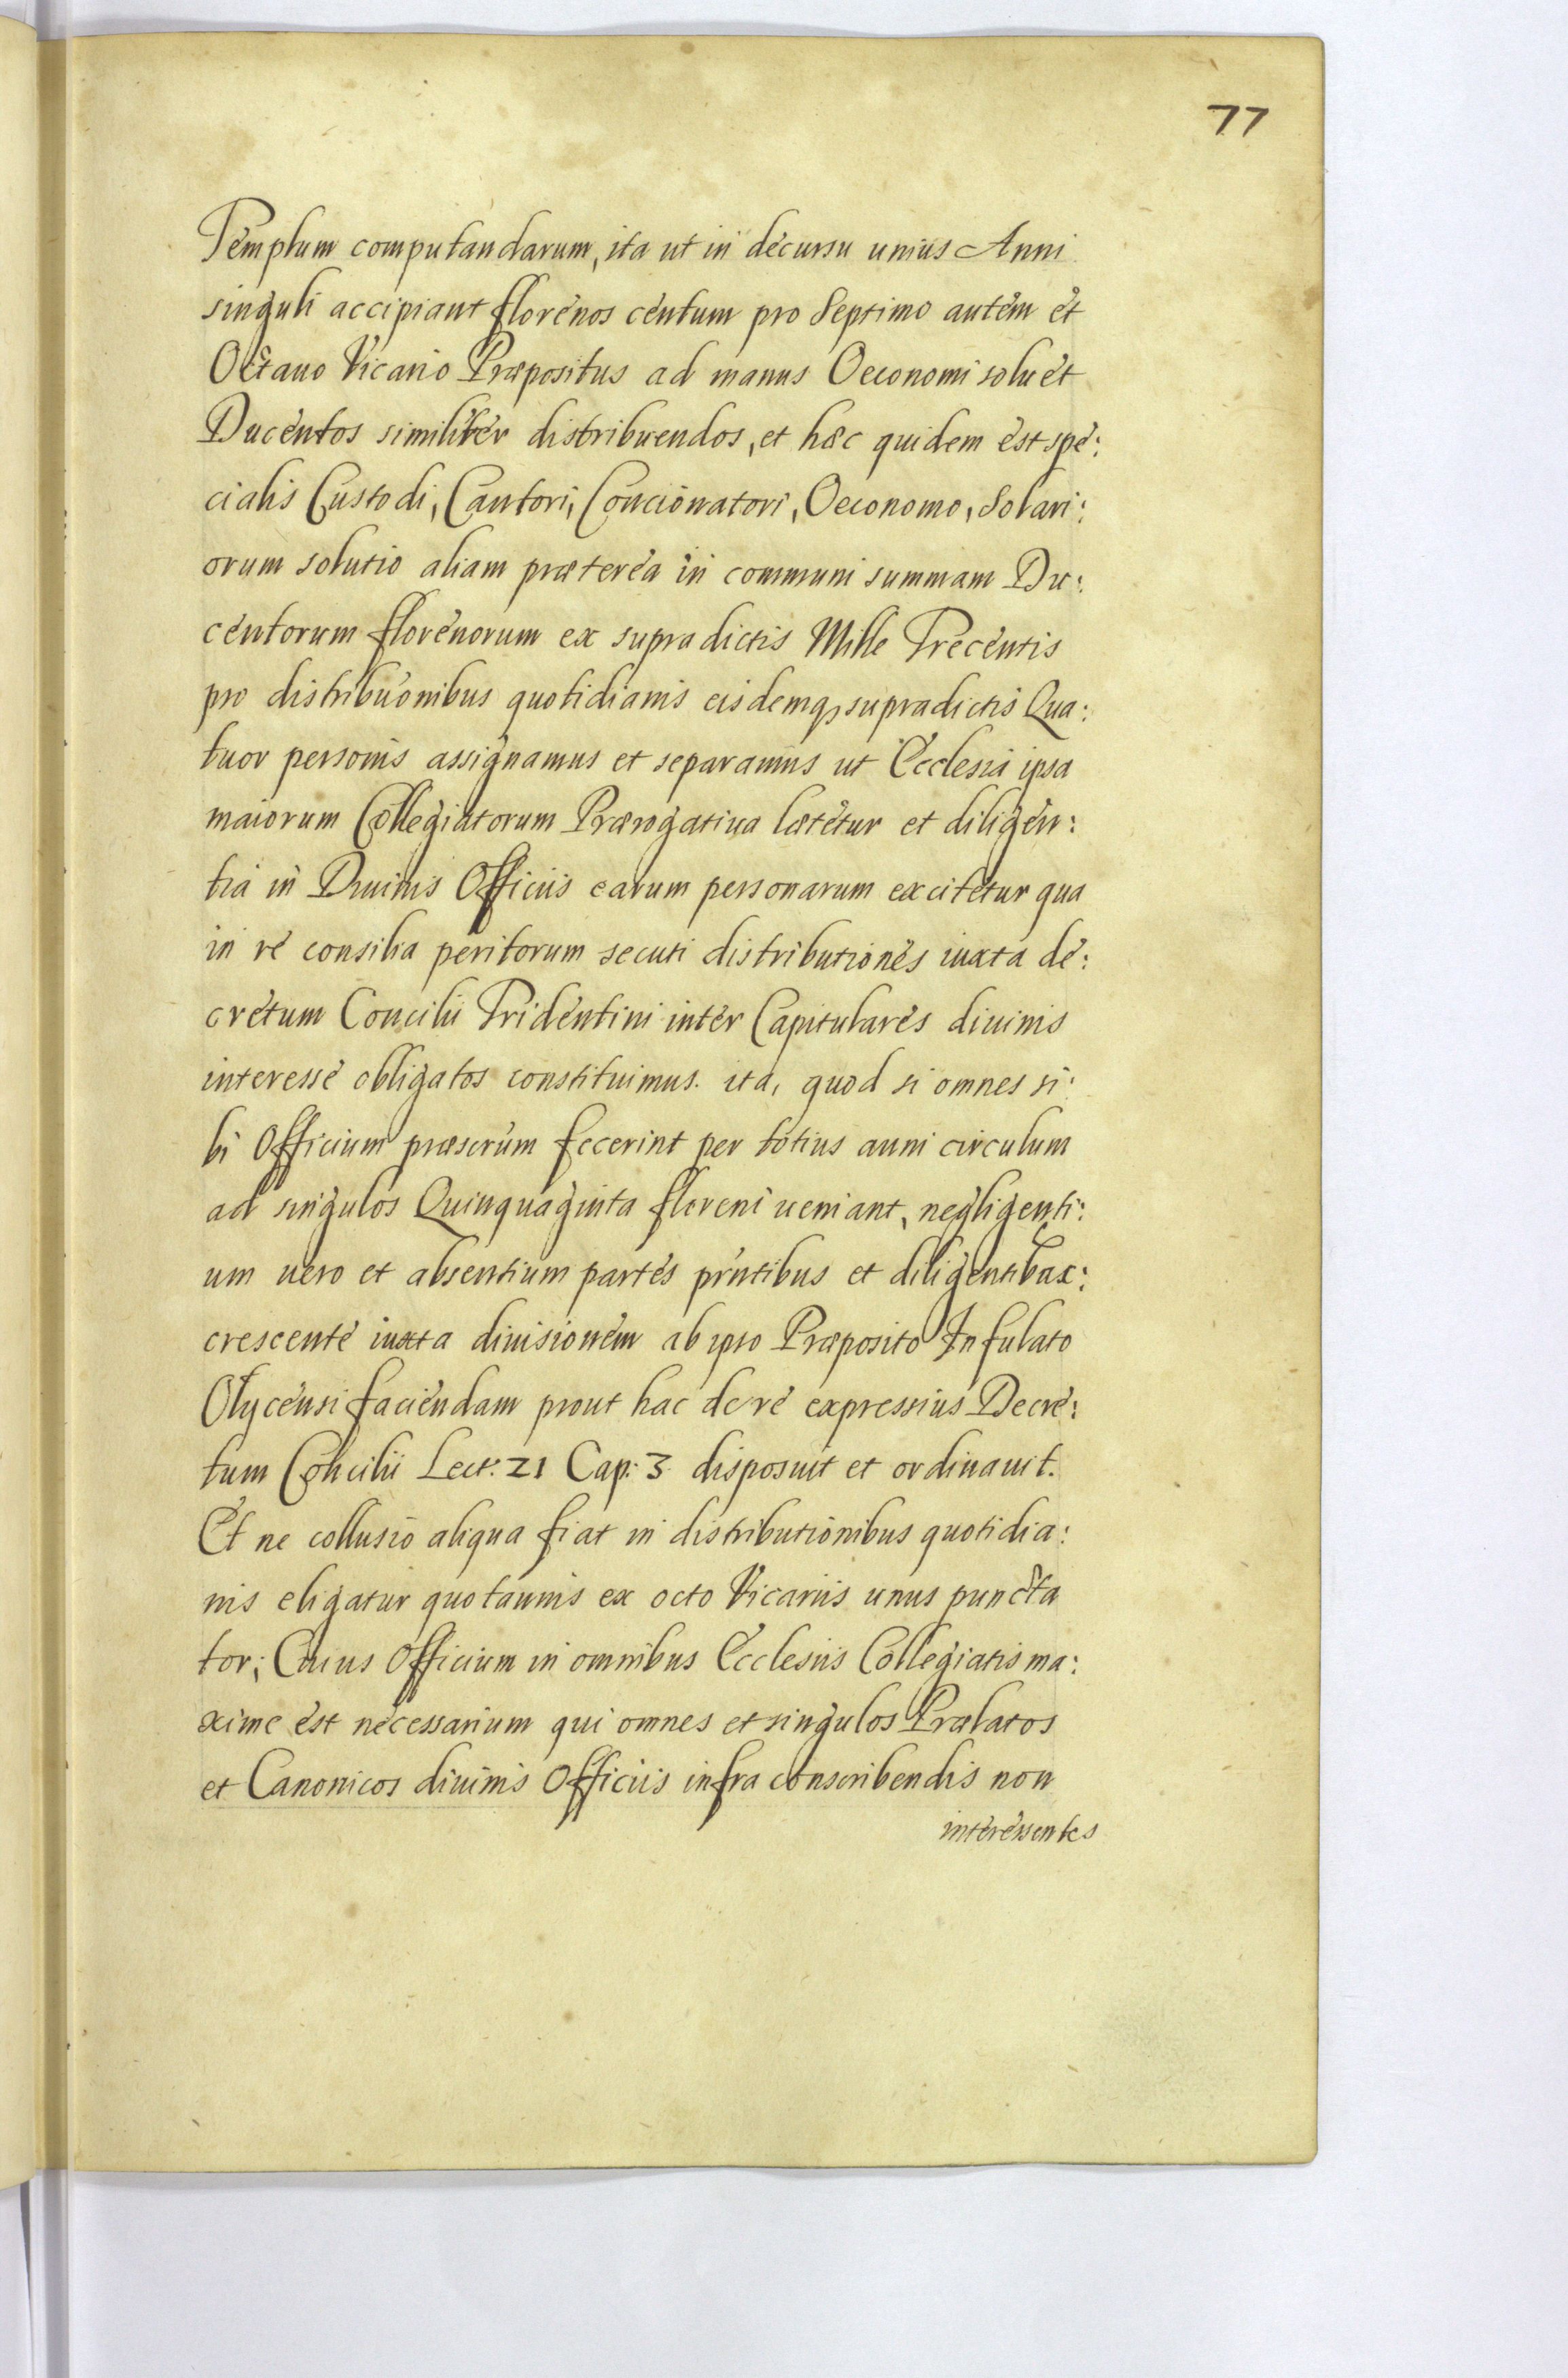 77
Templum computandarum, ita ut in decursu unius Anni
singuli accipiant florenos centum pro Septimo autem et
Octauo Vicario Præpositus ad manus Oeconomi soluet
Ducentos similiter distribuendos, et hæc quidem est spe:
cialis Custodi, Cantori, Concionatori, Oeconomo, Solari:
orum solutio aliam præterea in communi summam Du:
centorum florenorum ex supradictis Mille Trecentis
pro distribuonibus quotidianis eisdemq, supradictis Qua:
tuor personis assignamus et separamus ut Ecclesia ipsa
maiorum Collegiatorum Prærogatiua lætetur et diligen:
tia in Diuinis Officiis earum personarum excitetur qua
in re consilia peritorum secuti distributiones iuxta de:
cretum Concilii Tridentini inter Capitulares diuinis
interesse obligatos constituimus. ita, quod si omnes si:
bi Officium præscrum fecerint per totius anni circulum
ad singulos Quinquaginta floreni ueniant, negligenti:
um uero et absentium partes prntibus et diligentib ac:
crescente iuxta diuisionem ab ipso Præposito Infulato
Olycensi faciendam prout hac de re expressius Decre:
tum Concilii Lect: 21 Cap: 3 disposuit et ordinauit.
Et ne collusio aliqua fiat in distributionibus quotidia:
nis eligatur quotannis ex octo Vicariis unus puncta
tor; Cuius Officium in omnibus Ecclesiis Collegiatis ma:
xime est necessarium qui omnes et singulos Prælatos
et Canonicos diuinis Officiis infra conscribendis non
interessentes